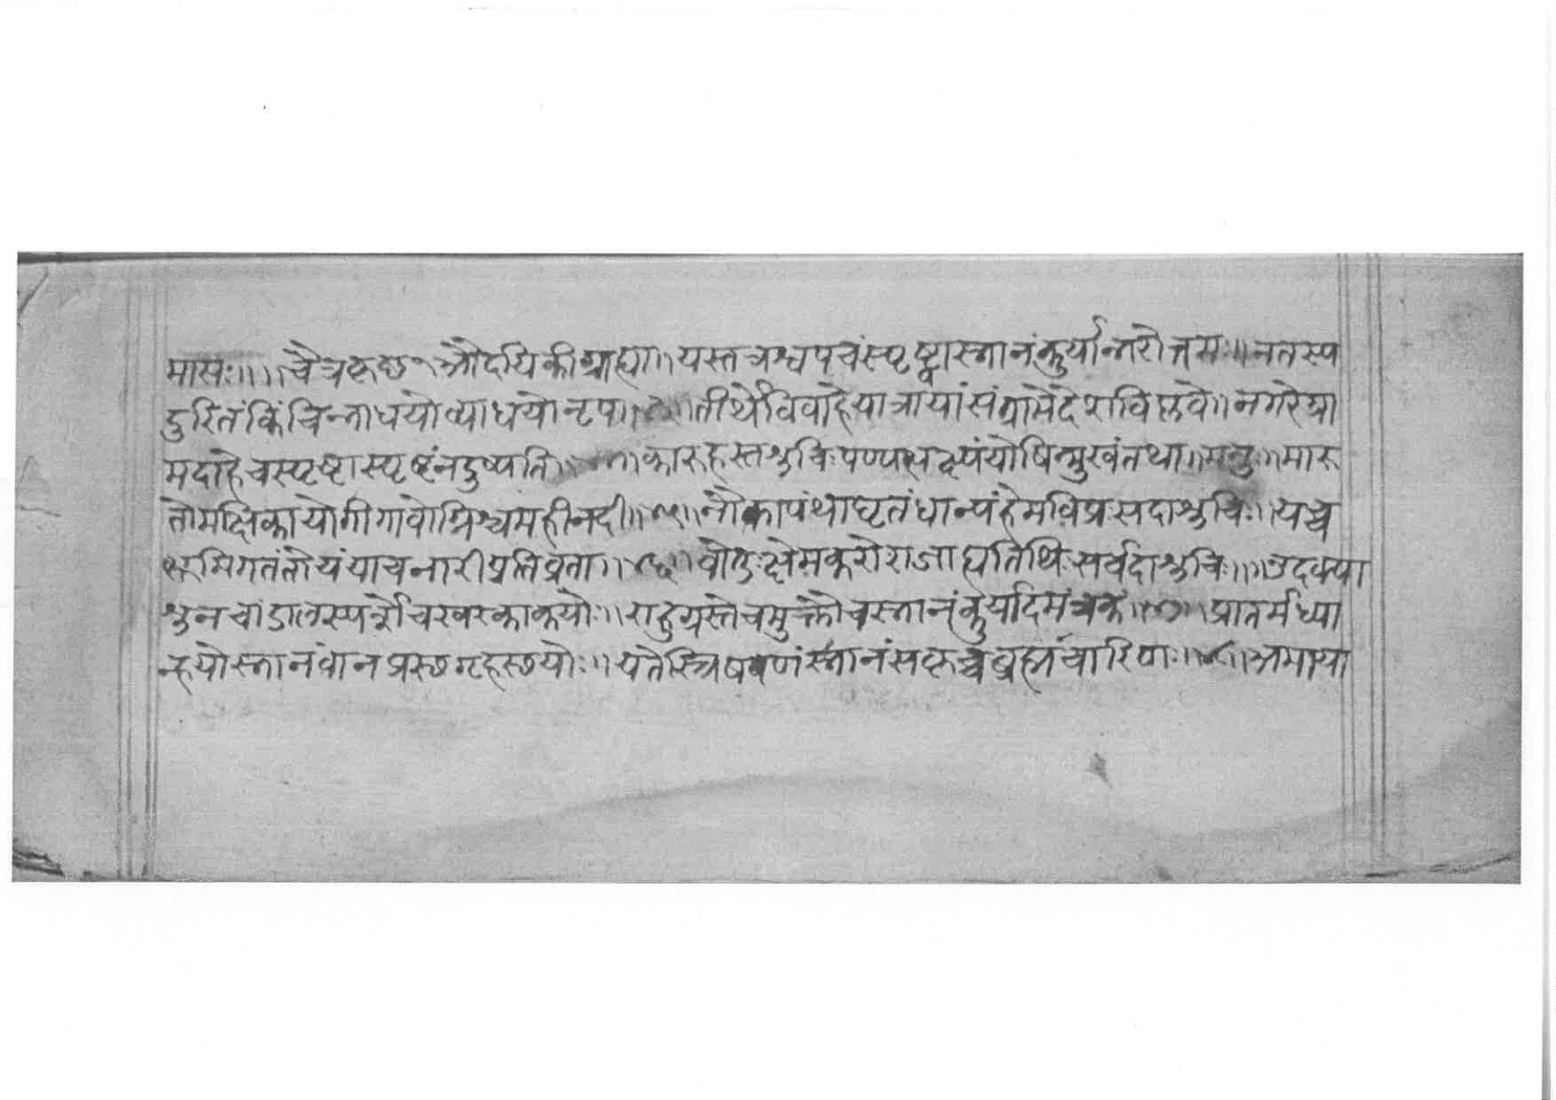 मासः॥॥चैत्रकृछ औदयिकीग्राह्या॥यस्तत्रश्वपचंस्पृष्ट्वास्नानंकुर्यान्नरोत्तमः॥नतस्य
दुरितंकिंचिन्नाधयोव्याधयोनृप॥ ॥तीर्थेविवाहेयात्रायांसंग्रामेदेशविप्लवे॥नगरेग्रा
मदाहेचस्पृष्टास्पृष्टंनदुष्यति॥ ॥कारुहस्तशुचिःपण्य योषिन्मुखंतथा॥मनुः॥मारु
तोमक्षिकायोगीगावोग्निश्चमहीनदी॥ ॥नौकापंथाघृतंधान्यंहेमविप्रसदाशुचिः॥यच्च
भूमिगतंतोयंयाचनारीप्रतिव्रता॥ ॥ क्षेमकरोराजाह्यतिथिःसर्वदाशुचिः॥॥उदक्या
शुनचांडालस्पर्शेचखरकाकयोः॥राहुग्रस्तेचमुक्तौचस्नानंकुर्यादमंत्रकं॥ ॥प्रातर्मध्या
न्हयोस्नानंवानप्रस्छगृहस्छयोः॥यतेस्त्रिषवणंस्नानंसकृच्चब्रह्मचारिणः॥ ॥अमाया